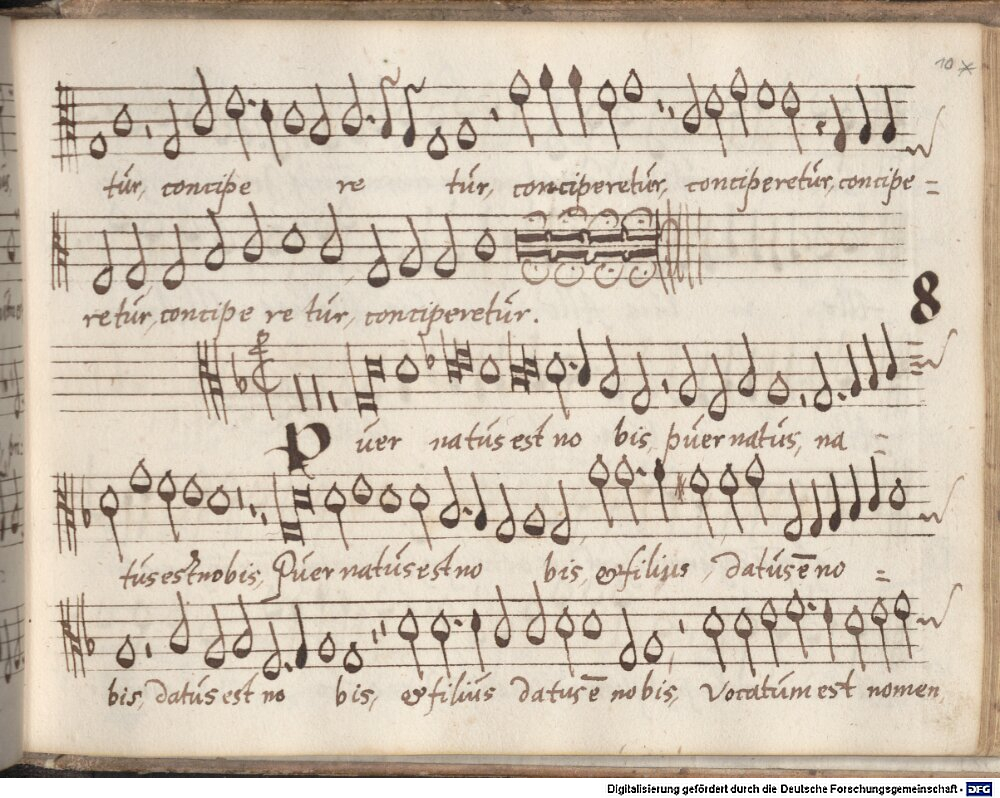 10
tur, concipe re tur, conciperetur, conciperetur, concipe =
retur, concipe re tur, conciperetur.
8
Puer natus est no bis, puer natus, na =
tus est nobis, Puer natus est no bis, & filius, datus ē no =
bis, datus est no bis, & filius datus ē nobis, vocatum est nomen,
Digitalisierung gefördert durch die Deutsche Forschungsgemeinschaft - DFG